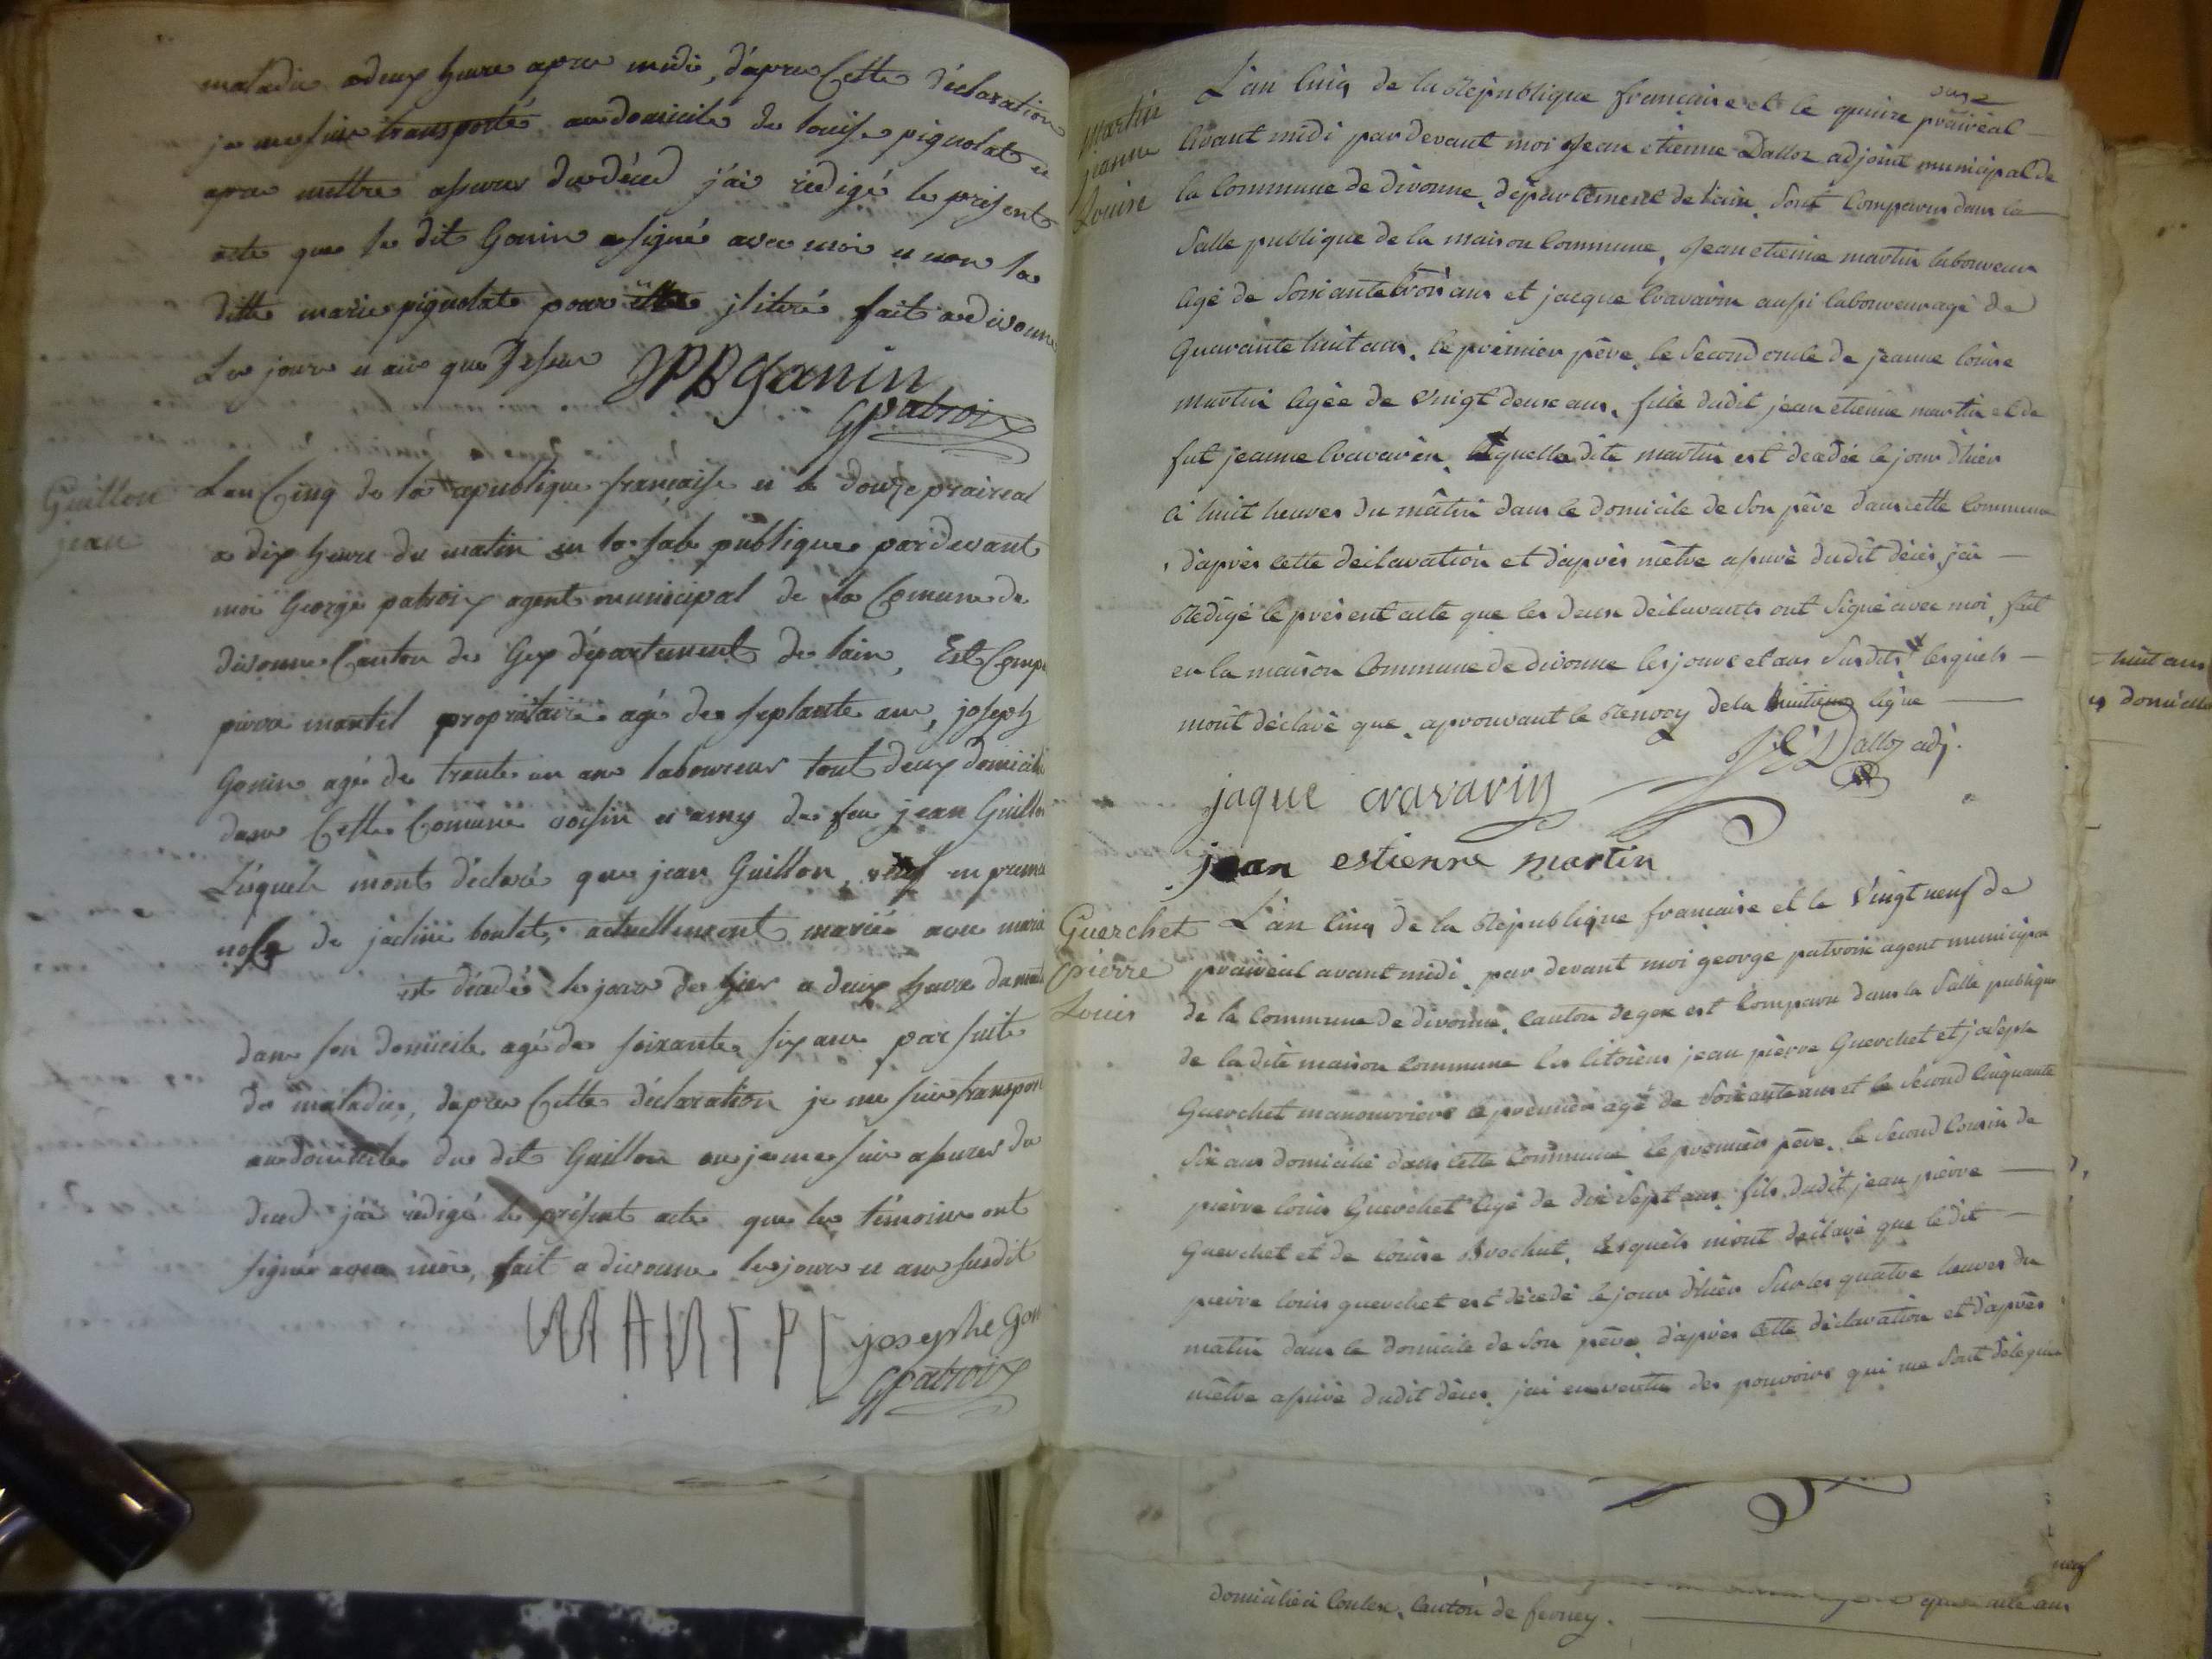 maladie a deux heure apres midi, d'apres Cette déclaration
je me suis transporté au domicile de louise pignolat et
apres mettre assurer du déced j'ai redigé le present
acte que le dit Gonin a signé avec moi et non la
ditte marie pignolat pour être jlitéré fait a divonne
Les jour et an que dessus JPBGonin
GPatroix
Guillon
jean
Lan Cinq de la republique française et le douze prairéal
a dix heure du matin en la sale publique pardevant
moi George patroix agent municipal de la Comune de
divonne Canton de Gex département de lain, Est Comp
pierre martil propriétaire agé de septante ans, joseph
Gonin agé de trante un ans laboureur tout deux domicili
dans Cette Comune voisin et amy de feu jean Guillon
Lesquels mont déclaré que jean Guillon, veuf en premie
nosse de jacline boulet, actuellement marié avec marie
est décédé le jour de hier a deux heure du mat
dans son domicile agé de soixante six ans par suite
de maladie, dapres Cette déclaration je me suis transport
au domicile du dit Guillon ou je me suis assurer du
déced j'ai rédigé le présent acte que les témoins ont
signés avec moi, fait a divonne les jour et an susdit
MARTPL josephe Gon
GPatroix
martin
jeanne
Louise
onze
L'an cinq de la République francaise et le prairéal
avant midi par devant moi Jean etienne Dalloz adjoint municipal de
la Commune de divonne, département de l'ain, sont comparus dans la
Salle publique de la maison Commune, Jean etienne martin laboureur
agé de soixante trois ans et jacque Cravarin aussi laboureur agé de
Quarante huit ans, le prémier pére, le second oncle de jeanne louise
martin agée de vingt deux ans, fille dudit jean etienne martin et de
fut jeanne Cravarin, laquelle dite martin est décédée le jour d'hier
à huit heures du mâtin dans le domicile de son pére dans cette commune
d'après cette déclaration et d'après m'être assuré dudit décès j'ai
Rédigé le présent acte que les deux déclarants ont signé avec moi, fait
en la maison Commune de divonne les jour et an susdits lesquels
mont déclaré que, aprouvant le Renvoy de la huitieme ligne
JEDalloz adj.
jaque cravarin
jean estienne martin
Guerchet
pierre
Louis
L'an cinq de la République francaise et le vingt neuf de
prairéal avant midi, par devant moi george patroix agent municipal
de la Commune de divonne, canton de gex est comparu dans la Salle publique
de la dite maison commune les citoiens jean pierre Guerchet et joseph
Guerchet manouvriers le prémier agé de soixante ans et le second cinquante
six ans domicilié dans cette commune le prémier pére, le second cousin de
pierre louis Guerchet agé de dix sept ans, fils dudit jean pierre
Guerchet et de louise Brochut, lesquels m'ont déclaré que le dit
pierre louis guerchet est décédé le jour d'hier sur les quatre heures du
matin dans le domicile de son pére, d'après cette déclaration et d'après
m'être assuré dudit décès, j'ai en vertu des pouvoirs qui me sont délégués
huit ans
domicilie
neuf
domicilié à Coulex, canton de ferney.
ans